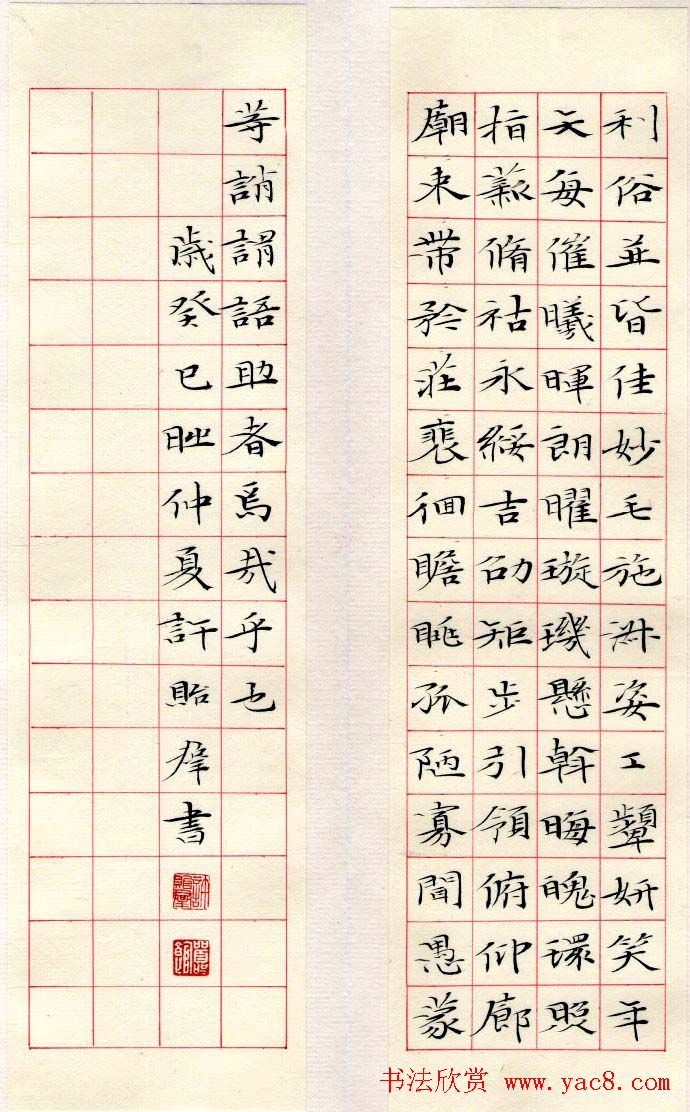 利俗並皆佳妙毛施淑姿工顰妍笑年
矢每催曦暉朗曜璇璣懸斡晦魄環照
指薪脩祜永綏吉劭矩步引領俯仰廊
廟束帶矜莊裴徊瞻眺孤陋寡聞愚蒙
等誚謂語助者焉哉乎也
歲癸巳仲夏許貽書
书法欣赏 www.yac8.com